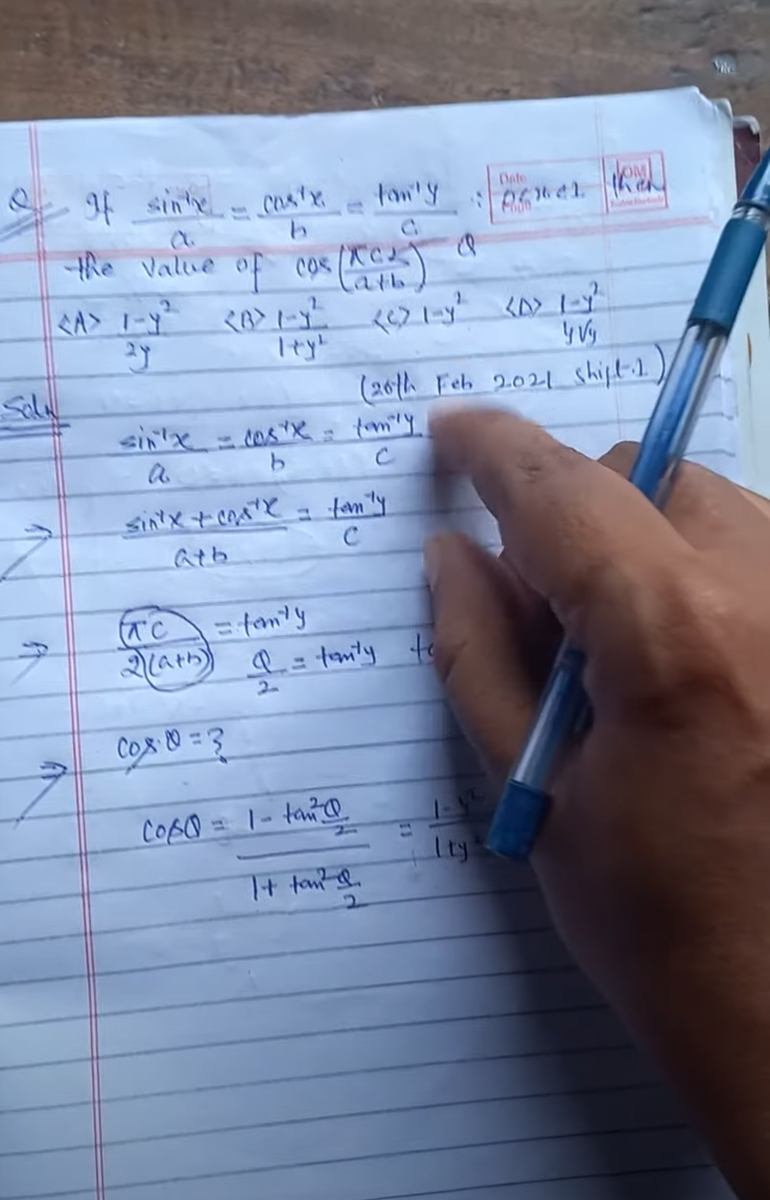 Q If sin⁻¹x/a = cos⁻¹x/b = tan⁻¹y/c ; 0<x<1 then
Date
Page
the value of cos(πc/(a+b))
<A> 1-y²/2y <B> 1-y²/1+y² <C> 1-y² <D> 1-y²/y√y
(26th Feb 2021 shift-1)
Soln
sin⁻¹x/a = cos⁻¹x/b = tan⁻¹y/c
⇒ sin⁻¹x + cos⁻¹x/a+b = tan⁻¹y/c
⇒ πc/2(a+b) = tan⁻¹y
θ/2 = tan⁻¹y
⇒ cosθ = ?
cosθ = 1 - tan²θ/2 / 1 + tan²θ/2 = 1-y²/1+y²